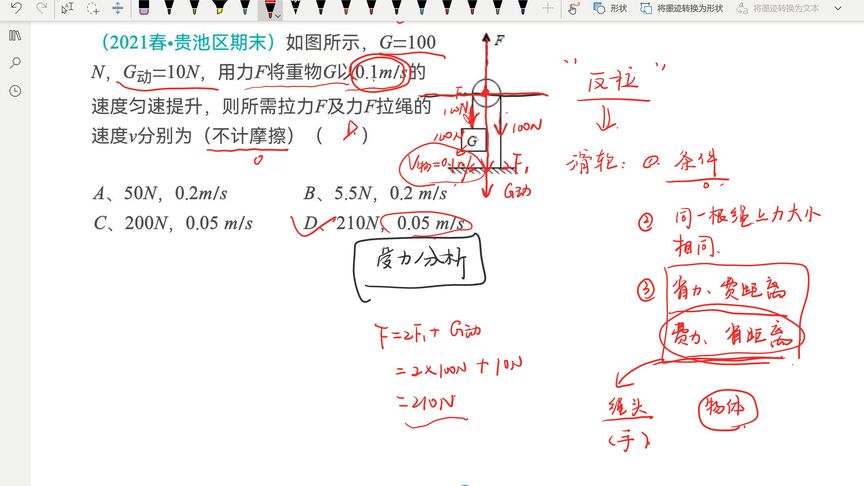 形状
将墨迹转换为形状
将墨迹转换为文本
（2021春•贵池区期末）如图所示，G=100
N，G动=10N，用力F将重物G以0.1m/s的
速度匀速提升，则所需拉力F及力F拉绳的
速度v分别为（不计摩擦）（ D ）
A、50N，0.2m/s
B、5.5N，0.2 m/s
C、200N，0.05 m/s
D、210N，0.05 m/s
F
100N
100N
100N
G
F₁
G动
受力分析
F=2F₁+G动
=2×100N+10N
=210N
"反拉"
滑轮：①. 条件
② 同一根绳上力大小
相同.
③ 省力、费距离
费力、省距离
绳头
(手)
物体